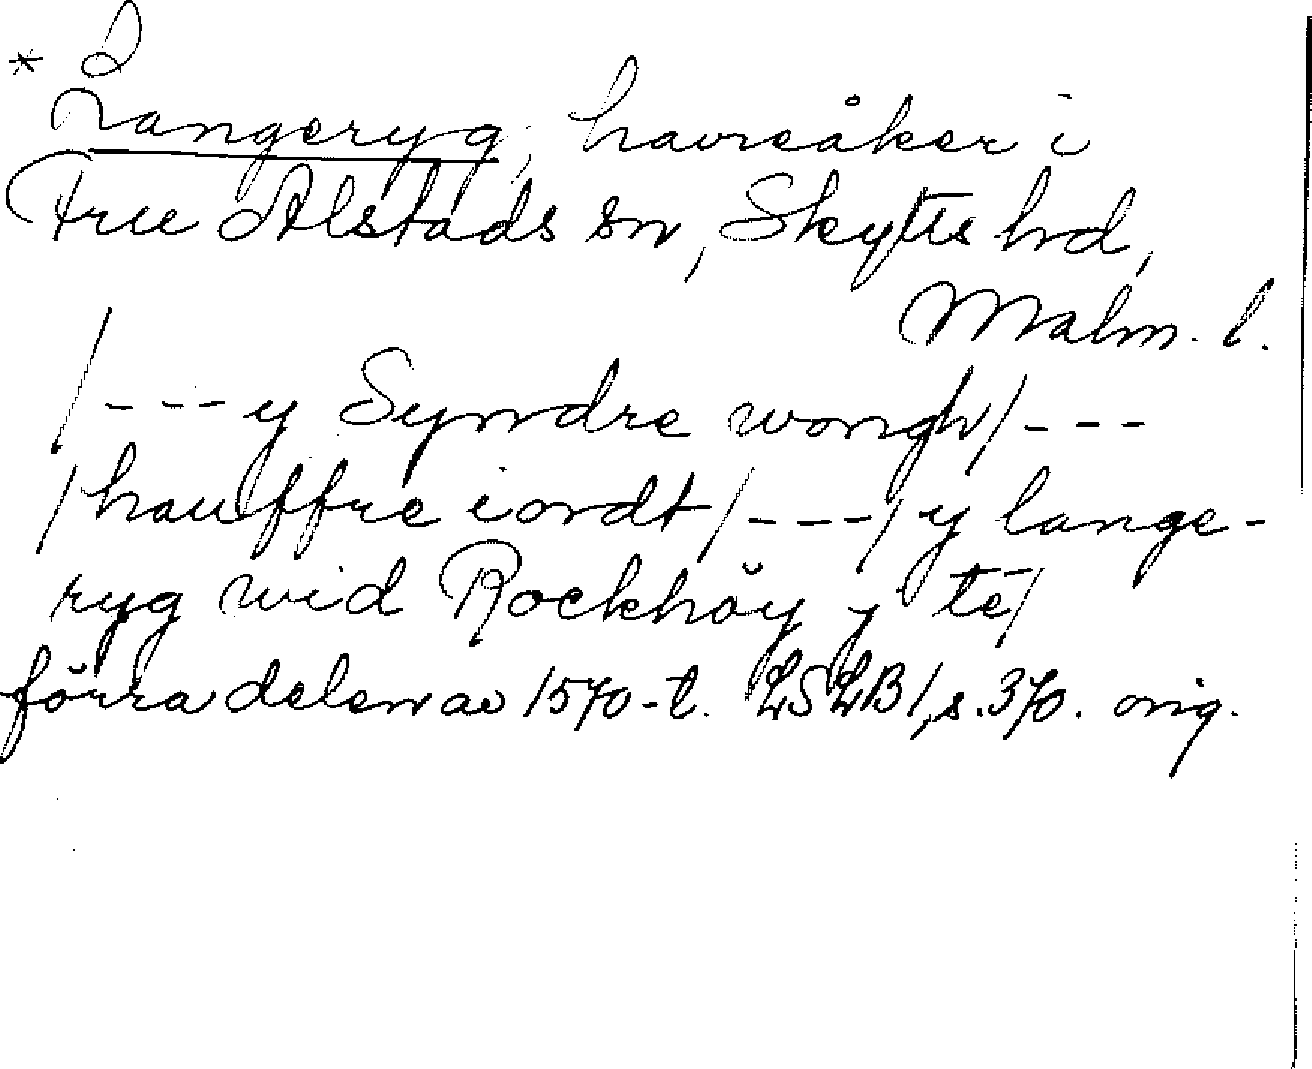 * Langeryg, havreåker i
Fru Alstads sn, Skytts hd,
Malm. l.
/--- y Syndre wongh/---
/hauffre iordt/---/y lange-
ryg wid Rockhöy y te/
förra delen av 1570-t. LSLB1, s. 370. orig.